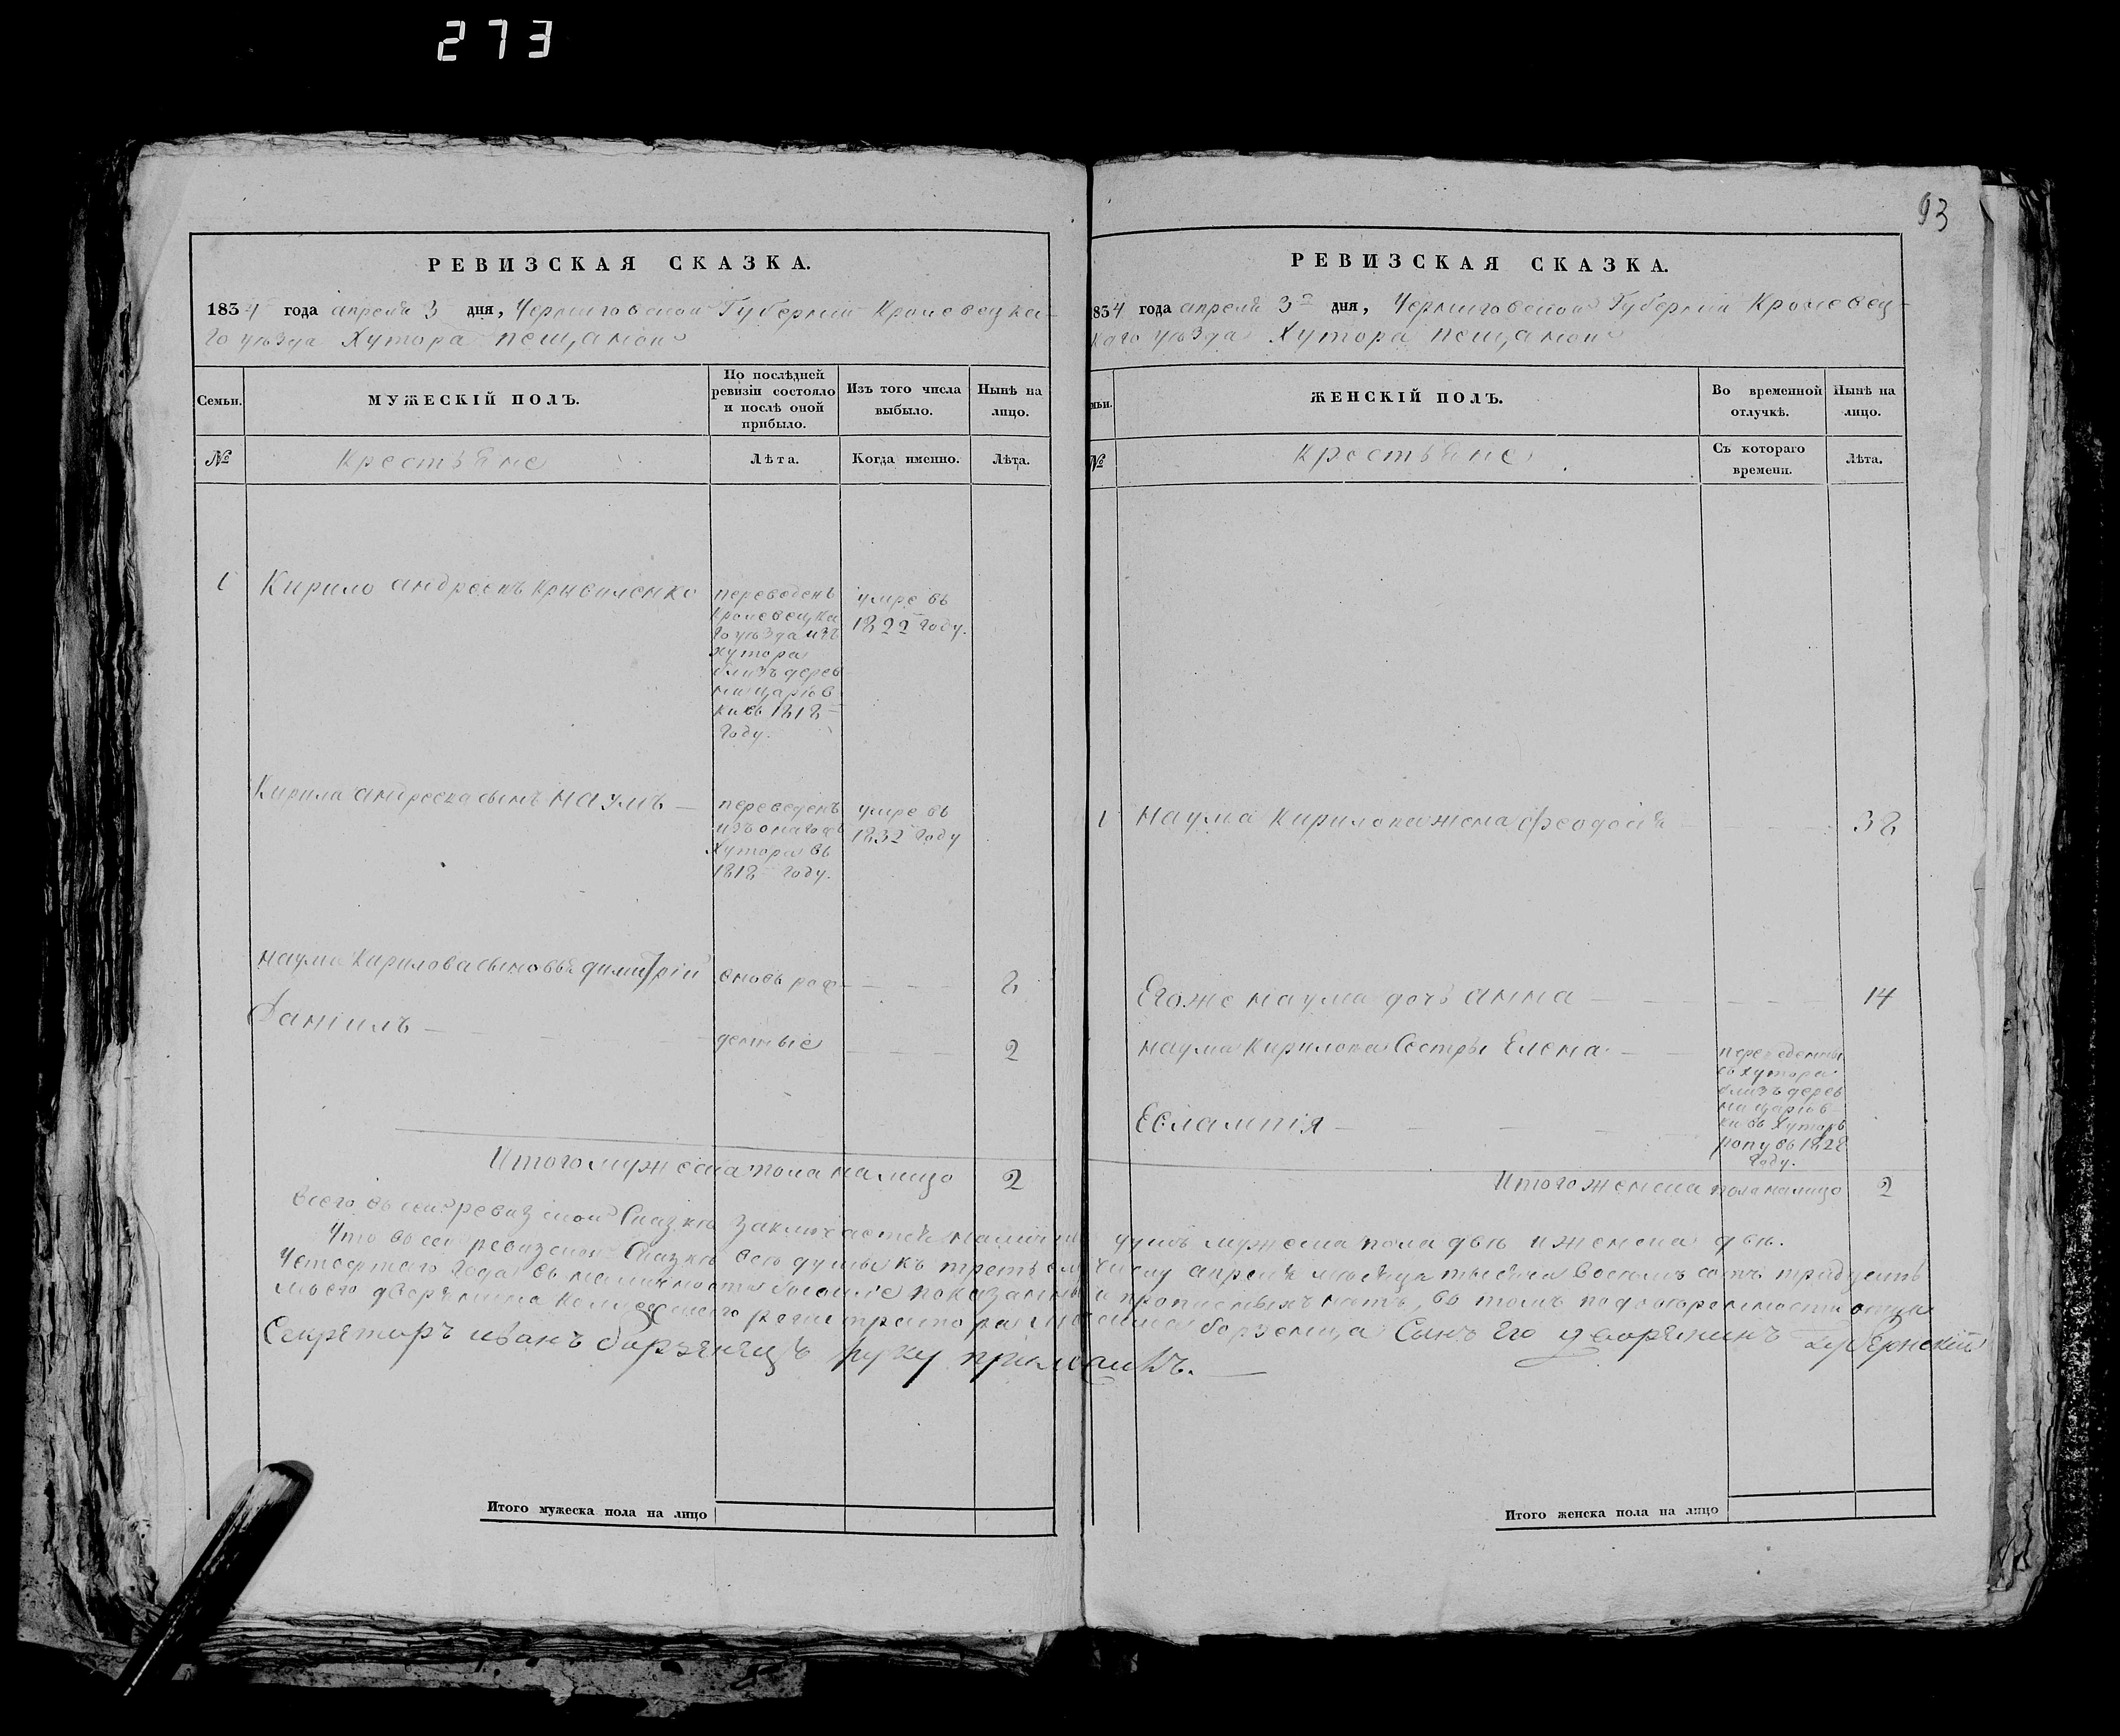 273
93
РЕВИЗСКАЯ СКАЗКА.
1834 года апреля 3 дня, Черниговской Губернии Кролевецка-
го уѣзда Хутора пещаной
Семьи.
МУЖЕСКІЙ ПОЛЪ.
По послѣдней ревизіи состояло и послѣ оной прибыло.
Изъ того числа выбыло.
Нынѣ на лицо.
№
крестьяне
Лѣта.
Когда именно.
Лѣта.
1 Кирило андреевъ
переведенъ
кролевецка
го уѣзда изъ
хутора
близъ дерев
ни царіов
ки въ 1818
году.
умре въ
1822 году.
Кирила андреева сынъ наумъ —
переведенъ
изъ онаго
Хутора въ
1818 году.
умре въ
1832 году
наума Кирилова сыновья димитрій
вновь рож
8
Даніилъ —
денные
2
Итого мужеска пола на лицо 2
РЕВИЗСКАЯ СКАЗКА.
834 года апреля 3го дня, Черниговской Губерніи Кролевец-
каго уѣзда Хутора пещаной
мьи.
ЖЕНСКІЙ ПОЛЪ.
Во временной отлучкѣ.
Нынѣ на лицо.
№
крестьяне
Съ котораго времени.
Лѣта.
1 Наума Кирилова жена феодосія 38
Его же наума дочь анна — 14
наума Кирилова Сестры Елена —
Евлампія —
переведенны
близъ дерев
ни царіов
году.
Итого женска пола на лицо 2
Всего въ сей ревизской Сказкѣ заключается наличныхъ душъ мужеска пола двѣ и женска двѣ.
Что въ сей ревизской Сказкѣ всѣ души къ третьему числу апреля мѣсяца тысяча восемъ сотъ тридцать
четвертаго года въ наличности показанны и прописныхъ нѣтъ, въ томъ по довѣренности отца
моего дворянина Колежскаго регистратора борзенца Сынъ его дворянинъ Губернскій
Секрътаръ иванъ борзенецъ руку приложилъ.
Итого мужеска пола на лицо
Итого женска пола на лицо